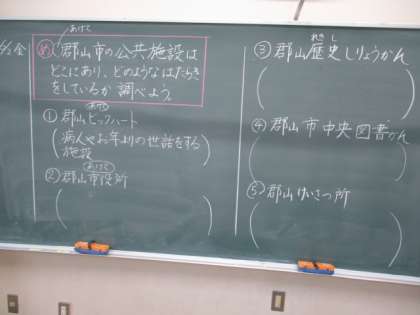 金
あけて
め 郡山市の公共施設は
どこにあり、どのようなはたらき
をしているか 調べよう。
① 郡山ビックハート
あける
(病人やお年よりの世話をする
施設)
あけて
② 郡山市役所
( )
れきし
③ 郡山歴史しりょうかん
( )
④ 郡山市中央図書かん
( )
⑤ 郡山けいさつ所
( )